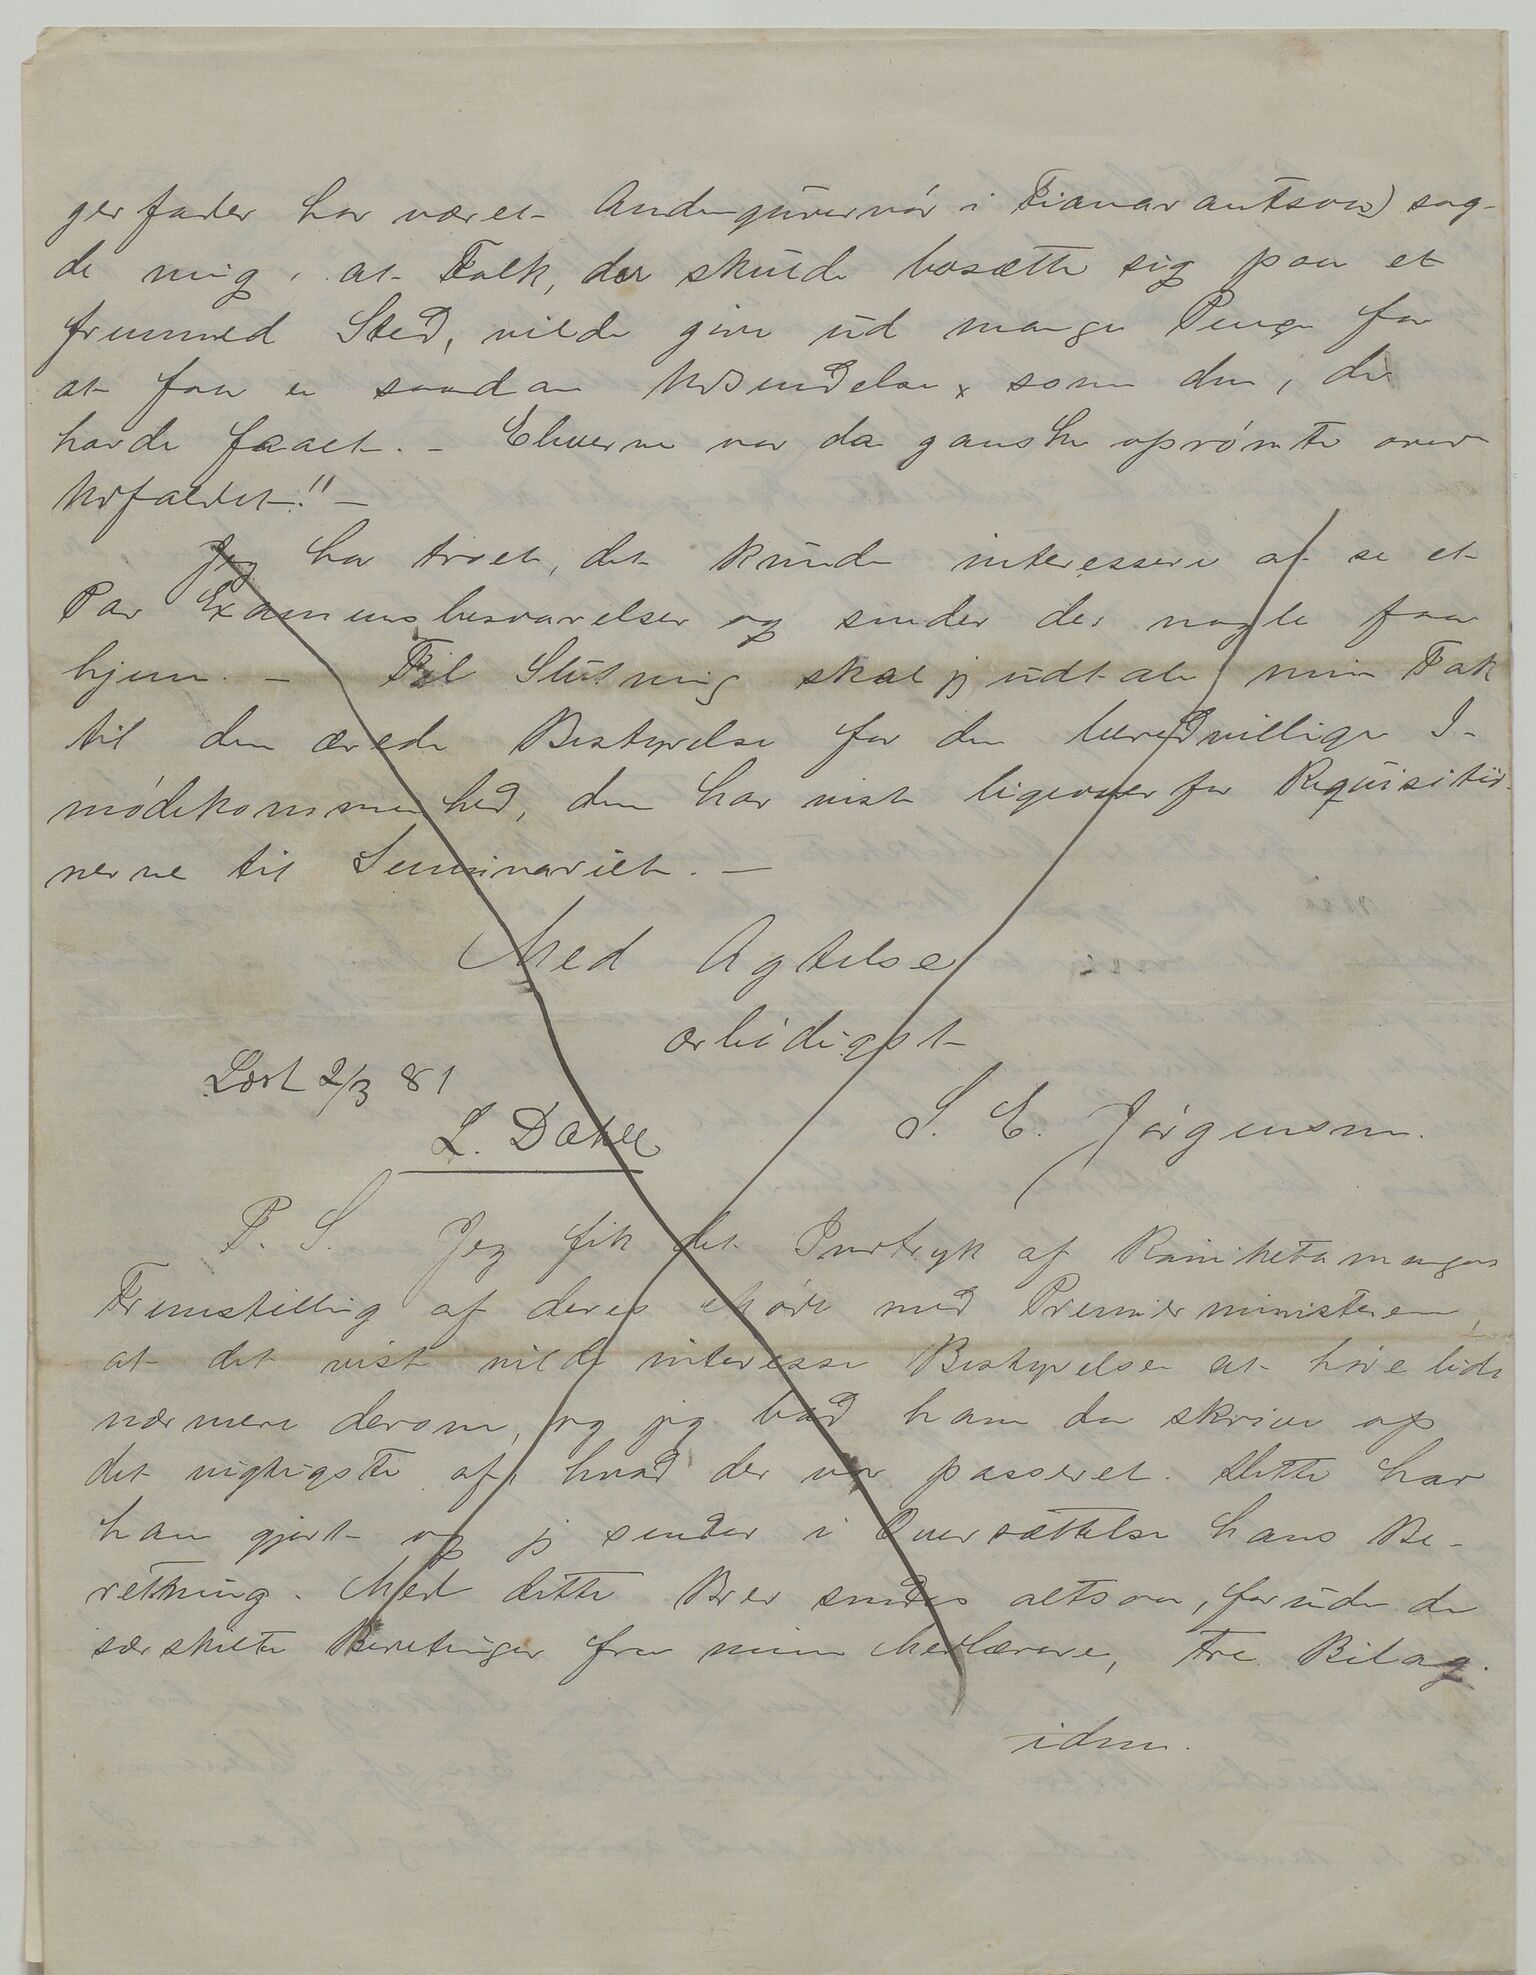 gerfader har været Andenguvernör i Fianarantsoa) sag-
de mig, at Folk, der skulde bosætte sig paa et
fremmed Sted, vilde give ud mange Penge for
at faa en saadan Udsendelse, som den, de
havde faaet. – Eleverne var da ganske oprömte over
Udfaldet." –
Jeg har troet, det kunde interessere at se et
Par Examensbesvarelser og sender der nogle faa
hjem. – Til Slutning skal jeg udtale min Tak
til den ærede Bestyrelse for den beredvillige I-
mödekommenhed, den har vist ligeoverfor Requisitio-
nerne til Seminariet. –
Med Agtelse
ærbödigst
Læst 2/3 81
L. Dahle
S. E. Jörgensen.
P. S. Jeg fik det Indtryk af Rainiketamangas
Fremstilling af deres Möde med Premierministeren,
at det vist vilde interesse Bestyrelsen at höre lidt
nærmere derom, og jeg bad ham da skrive op
det vigtigste af, hvad der var passeret. Dette har
han gjort og jeg sender i Oversættelse hans Be-
retning. Med dette Brev sendes altsaa, foruden de
særskilte Beretninger fra mine Medlærere, tre Bilag.
idem.